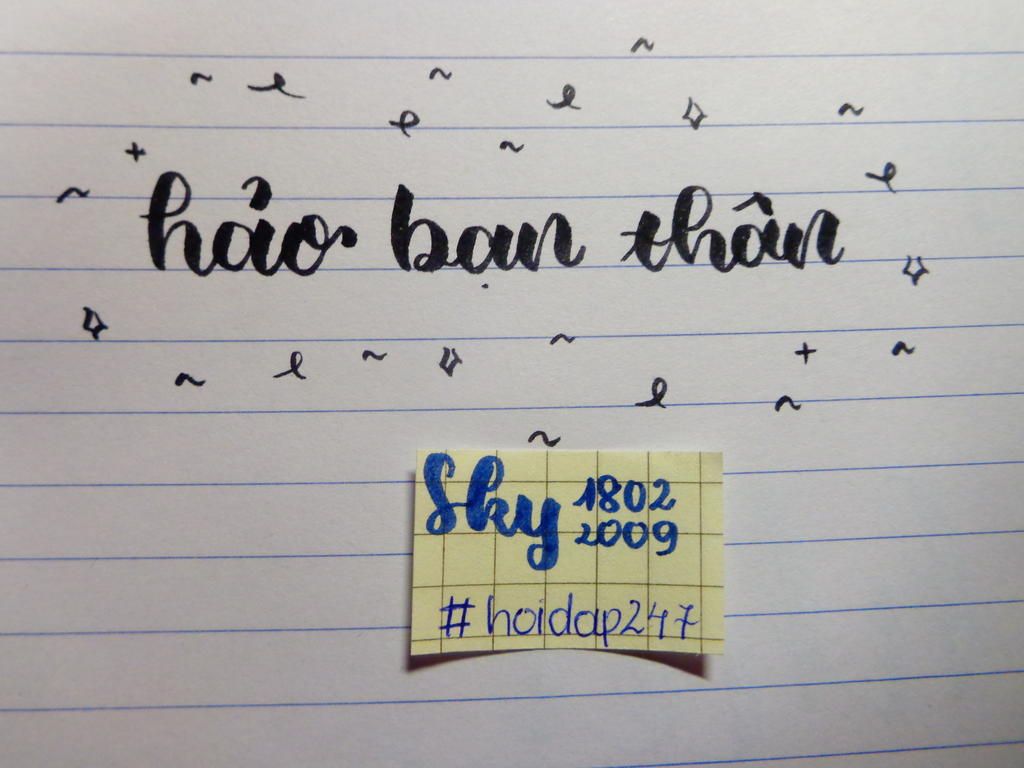 hảo bạn thân
Sky 1802
2009
#hoidap247